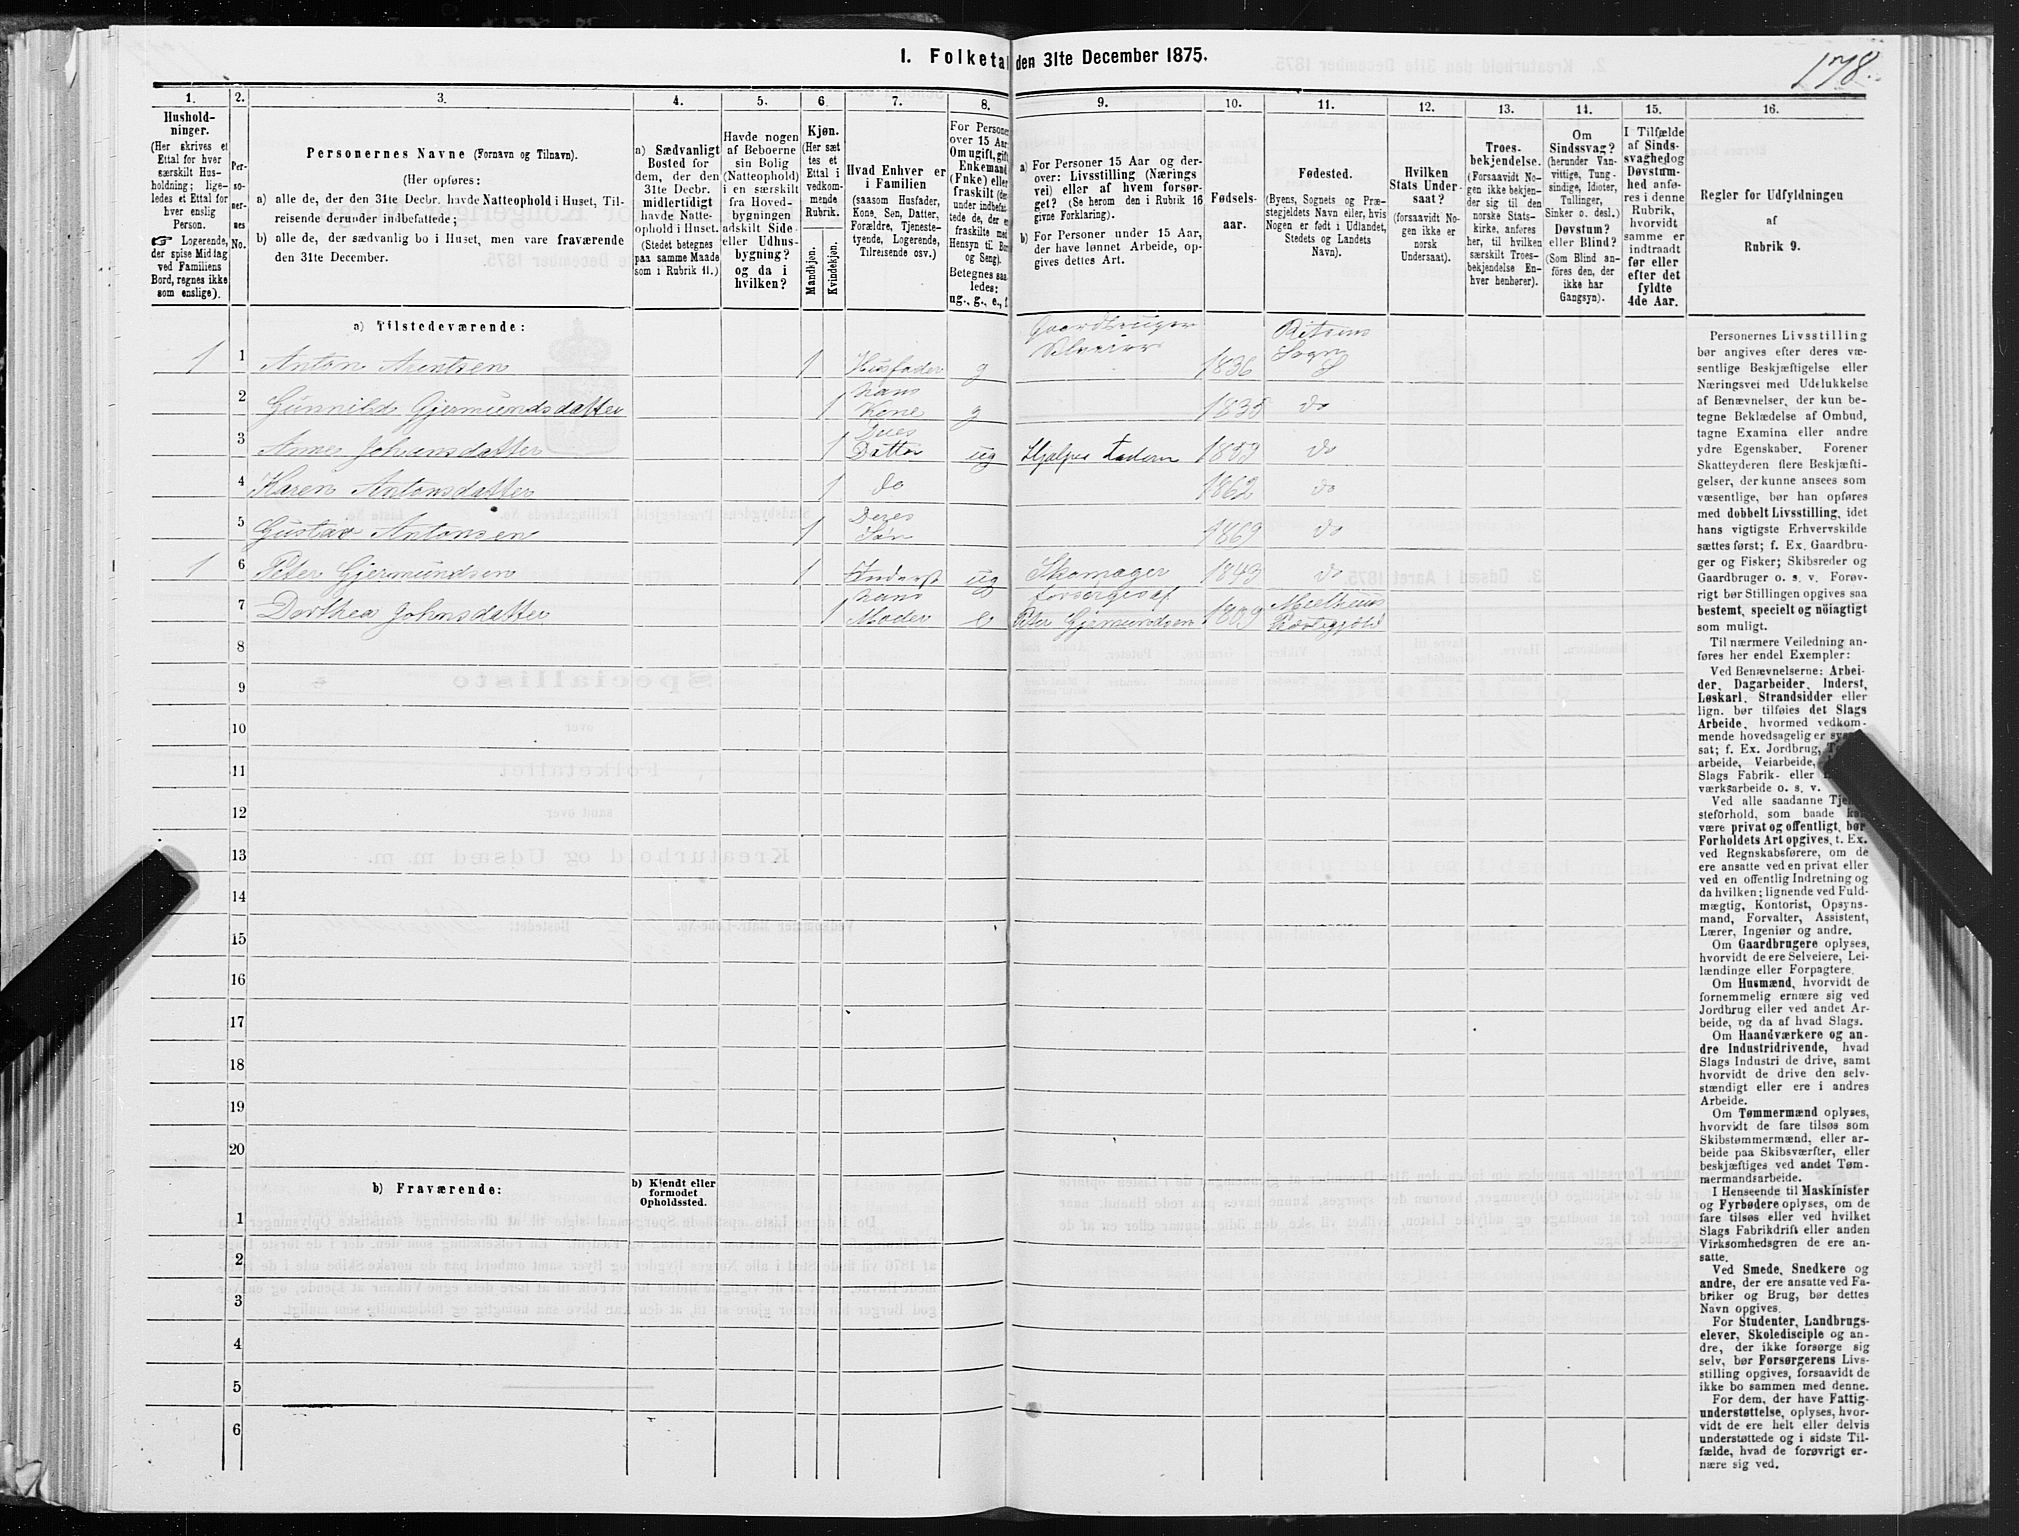 1. Folketal den 31te December 1875.
178.
1.
Hushold-
ninger.
(Her skrives et
Ettal for hver
særskilt Hus-
holdning; lige-
ledes et Ettal for
hver enslig
Person.
☞ Logerende,
der spise Middag
ved Familiens
Bord, regnes ikke
som enslige).
2.
Per-
so-
ner-
nes
No.
3.
Personernes Navne (Fornavn og Tilnavn).
(Her opføres:
a) alle de, der den 31te Decbr. havde Natteophold i Huset, Til-
reisende derunder indbefattede;
b) alle de, der sædvanlig bo i Huset, men vare fraværende
den 31te December.
4.
a) Sædvanligt
Bosted for
dem, der den
31te Decbr.
midlertidigt
havde Natte-
ophold i Huset.
(Stedet betegnes
paa samme Maade
som i Rubrik 11.)
5.
Havde nogen
af Beboerne
sin Bolig
(Natteophold)
i en særskilt
fra Hoved-
bygningen
adskilt Side-
eller Udhus-
bygning?
og da i
hvilken?
6.
Kjøn.
(Her sæt
tes et
Ettal i
vedkom-
mende
Rubrik.
Mandkjøn.
Kvindekjøn.
7.
Hvad Enhver er
i Familien
(saasom Husfader,
Kone, Søn, Datter,
Forældre, Tjeneste-
tyende, Logerende,
Tilreisende osv.)
8.
For Personer
over 15 Aar:
Om ugift, gift,
Enkemand
(Enke) eller
fraskilt (der-
under indbefat-
tede de, der ere
fraskilte med
Hensyn til Bord
og Seng).
Betegnes saa-
ledes:
ug., g., e., f.
9.
a) For Personer 15 Aar og der-
over: Livsstilling (Nærings
vei) eller af hvem forsør-
get? (Se herom den i Rubrik 16
givne Forklaring).
b) For Personer under 15 Aar,
der have lønnet Arbeide, op-
gives dettes Art.
10.
Fødsels-
aar.
11.
Fødested.
(Byens, Sognets og Præ-
stegjeldets Navn eller, hvis
Nogen er født i Udlandet,
Stedets og Landets
Navn).
12.
Hvilken
Stats Under-
saat?
(forsaavidt No-
gen ikke er
norsk
Undersaat).
13.
Troes-
bekjendelse.
(Forsaavidt No-
gen ikke bekjen-
der sig til den
norske Stats-
kirke, anføres
her, til hvilken
særskilt Troes-
bekjendelse En-
hver henhører).
14.
Om
Sindssvag?
(herunder Van-
vittige, Tung-
sindige, Idioter,
Tullinger,
Sinker o. desl.)
Døvstum?
eller Blind?
(Som Blind an-
føres den, der
ikke har
Gangsyn).
15.
I Tilfælde
af Sinds-
svaghed og
Døvstum-
hed anfø-
res i denne
Rubrik,
hvorvidt
samme er
indtraadt
før eller
efter det
fyldte
4de Aar.
16.
Regler for Udfyldningen
af
Rubrik 9.
a) Tilstedeværende:
1 1 Anton Arentsen 1 Husfader g Gaardbruger Selveier 1836 Sogn
2 Gunnild Gjermundsdatter 1 hans Kone g 1835 do
3 Anne Johansdatter 1 Deres Datter ug Hjælper Faderen 1859 do
4 Karen Antonsdatter 1 do 1862 do
5 Gustav Antonsen 1 Deres Søn 1869 do
1 6 Peter Gjermundsen 1 Inderst ug Skomager 1843 do
7 Dorthea Johnsdatter 1 hans Moder e forsørges af Peter Gjermundsen 1809 Meelhuus Præstegjæld
8
9
10
11
12
13
14
15
16
17
18
19
20
b) Fraværende:
b) Kjendt eller
formodet
Opholdssted.
1
2
3
4
5
6
Personernes Livsstilling
bør angives efter deres væ-
sentlige Beskjæftigelse eller
Næringsvei med Udelukkelse
af Benævnelser, der kun be-
tegne Beklædelse af Ombud,
tagne Examina eller andre
ydre Egenskaber. Forener
Skatteyderen flere Beskjæfti-
gelser, der kunne ansees som
væsentlige, bør han opføres
med dobbelt Livsstilling, idet
hans vigtigste Erhvervskilde
sættes først; f. Ex. Gaardbru-
ger og Fisker; Skibsreder og
Gaardbruger o. s. v. Forøv-
rigt bør Stillingen opgives saa
bestemt, specielt og nöiagtigt
som muligt.
Til nærmere Veiledning an-
føres her endel Exempler:
Ved Benævnelserne: Arbei-
der, Dagarbeider, Inderst,
Løskarl, Strandsidder eller
lign. bør tilføies det Slags
Arbeide, hvormed vedkom-
mende hovedsagelig er syssel-
sat; f. Ex. Jordbrug,
arbeide, Veiarbeide,
Slags Fabrik- eller
værksarbeide o. s. v.
Ved alle saadanne Tjene-
steforhold, som baade kan
være privat og offentligt, bør
Forholdets Art opgives, t. Ex.
ved Regnskabsførere, om de
ere ansatte ved en privat eller
ved en offentlig Indretning og
da hvilken; lignende ved Fuld-
mægtig, Kontorist, Opsyns-
mand, Forvalter, Assistent,
Lærer, Ingeniør og andre.
Om Gaardbrugere oplyses,
hvorvidt de ere Selveiere, Lei-
lændinge eller Forpagtere.
Om Husmænd, hvorvidt de
fornemmelig ernære sig ved
Jordbrug eller ved andet Ar-
beide, og da af hvad Slags.
Om Haandværkere og an-
dre Industridrivende, hvad
Slags Industri de drive, samt
hvorvidt de drive den selv-
stændigt eller ere i andres
Arbeide.
Om Tømmermænd oplyses,
hvorvidt de fare tilsøs som
Skibstømmermænd, eller ar-
beide paa Skibsværfter, eller
beskjæftiges ved andet Tøm-
mermandsarbeide.
I Henseende til Maskinister
og Fyrbødere oplyses, om de
fare tilsøs eller ved hvilket
Slags Fabrikdrift eller anden
Virksomhedsgren de ere an-
satte.
Ved Smede, Snedkere og
andre, der ere ansatte ved Fa-
briker og Brug, bør dettes
Navn opgives.
For Studenter, Landbrugs-
elever, Skoledisciple og an-
dre, der ikke forsørge sig
selv, bør Forsørgerens Livs-
stilling opgives, forsaavidt de
ikke bo sammen med denne.
For dem, der have Fattig-
understøttelse, oplyses, hvor-
vidt de ere helt eller delvis
understøttede og i sidste Til-
fælde, hvad de forøvrigt er-
nære sig ved.